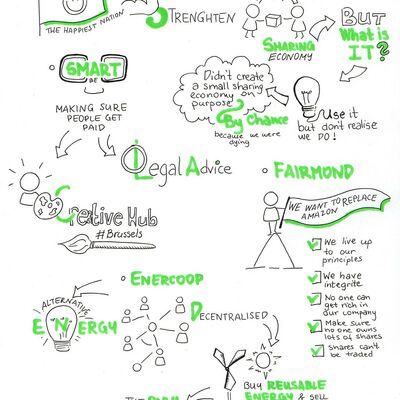 THE HAPPIEST NATION
STRENGHTEN
SHARING
ECONOMY
BUT
What is
IT?
SMART
BE
MAKING SURE
PEOPLE GET
PAID
Didn't create
a small sharing
economy on
purpose
By Chance
because we were
dying
Use it
but don't realise
we DO!
Legal Advice
Creative Hub
#Brussels
FAIRMOND
WE WANT TO REPLACE
AMAZON
We live up
to our
principles
We have
integrite
No one can
get rich in
our company
Make sure
no one owns
lots of shares
shares can't
be traded
ENERCOOP
ALTERNATIVE
ENERGY
DECENTRALISED
BUY REUSABLE
ENERGY & SELL